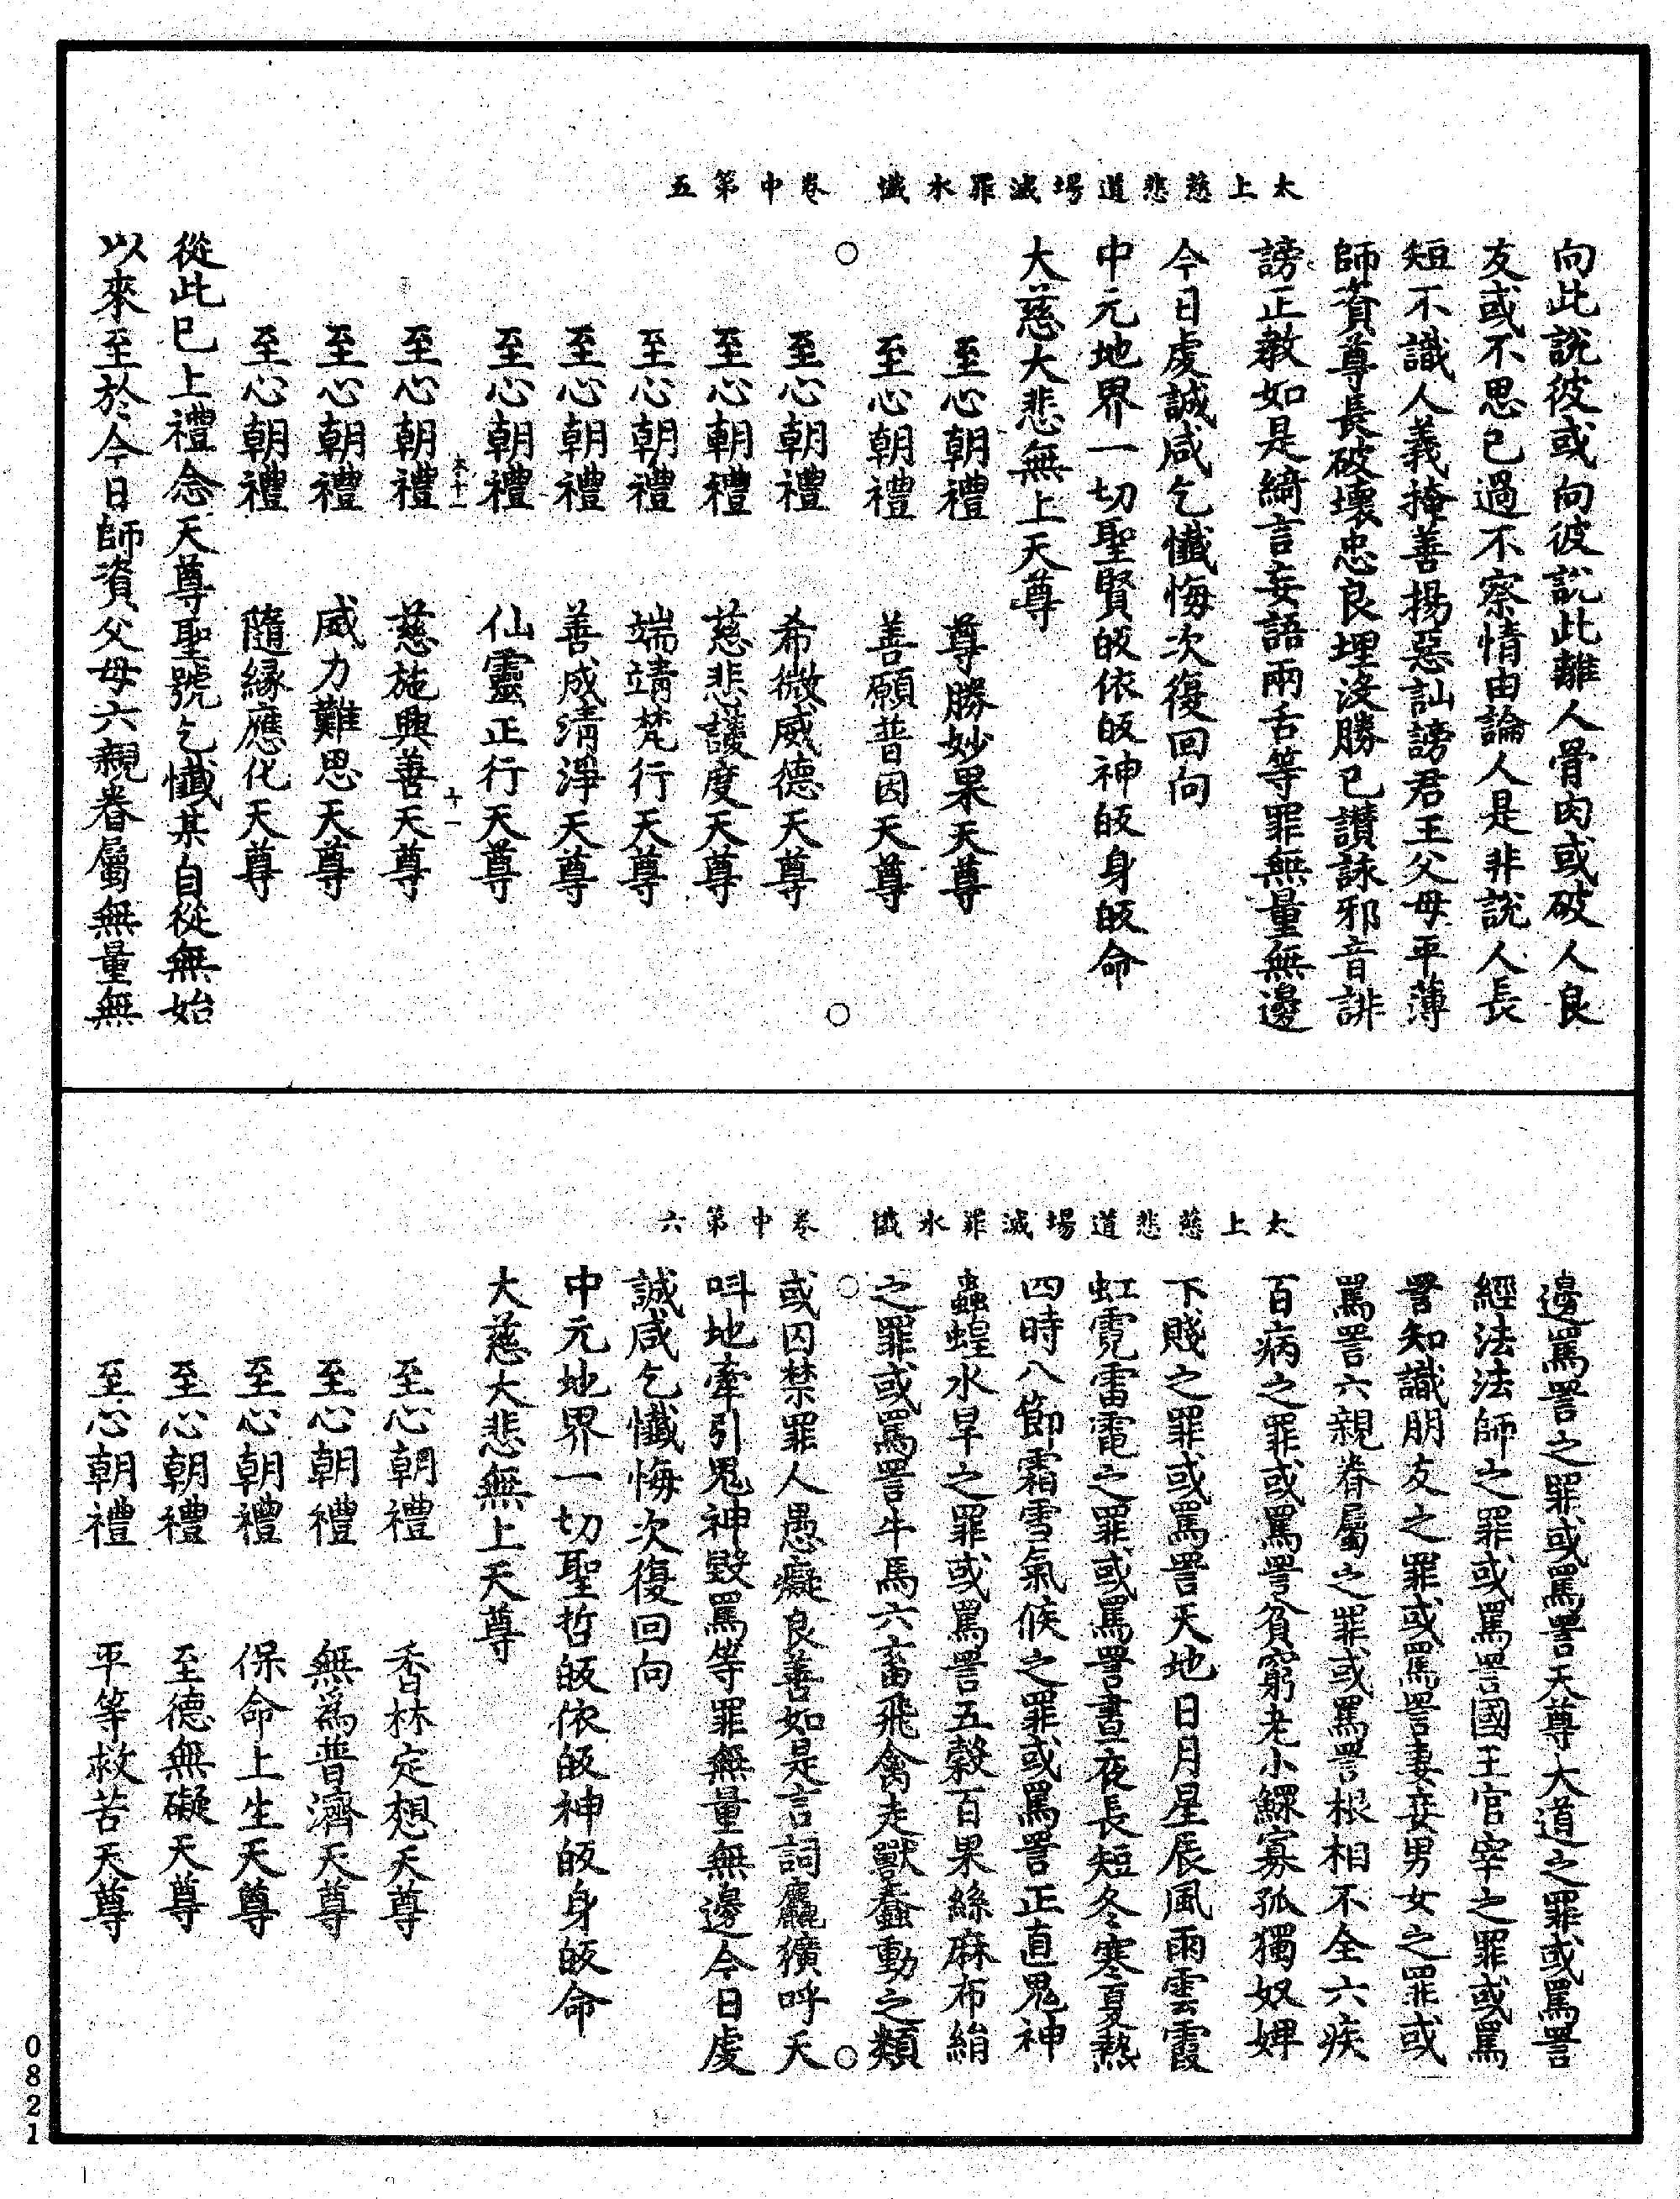 太上慈悲道場滅罪水懺　卷中第五
向此說彼或向彼說此離人骨肉或破人良
友或不思己過不察情由論人是非說人長
短不識人義掩善揚惡訕謗君王父母平薄
師資尊長破壞忠良埋沒勝己讃詠邪音誹
謗正教如是綺言妄語兩舌等罪無量無邊
今日虔誠咸乞懺悔次復回向
中元地界一切聖賢皈依皈神皈身皈命
大慈大悲無上天尊
至心朝禮　尊勝妙果天尊
至心朝禮　善願普因天尊
至心朝禮　希微威德天尊
至心朝禮　慈悲護度天尊
至心朝禮　端靖梵行天尊
至心朝禮　善成清淨天尊
至心朝禮　仙靈正行天尊
十一
至心朝禮　慈施興善天尊
至心朝禮　威力難思天尊
至心朝禮　隨緣應化天尊
從此已上禮念天尊聖號乞懺某自從無始
以來至於今日師資父母六親眷屬無量無
太上慈悲道場滅罪水懺　卷中第六
邊罵詈之罪或罵詈天尊大道之罪或罵詈
經法法師之罪或罵詈國王官宰之罪或罵
詈知識朋友之罪或罵詈妻妾男女之罪或
罵詈六親眷屬之罪或罵詈根相不全六疾
百病之罪或罵詈貧窮老小鰥寡孤獨奴婢
下賤之罪或罵詈天地日月星辰風雨雲霞
虹霓雷電之罪或罵詈晝夜長短冬寒夏熱
四時八節霜雪氣候之罪或罵詈正直鬼神
蟲蝗水旱之罪或罵詈五穀百果絲麻布絹
之罪或罵詈牛馬六畜飛禽走獸蠢動之類
或囚禁罪人愚癡良善如是言詞麤獷呼天
呌地牽引鬼神毀罵等罪無量無邊今日虔
誠咸乞懺悔次復回向
中元地界一切聖哲皈依皈神皈身皈命
大慈大悲無上天尊
至心朝禮　香林定想天尊
至心朝禮　無為普濟天尊
至心朝禮　保命上生天尊
至心朝禮　至德無礙天尊
至心朝禮　平等救苦天尊
0821